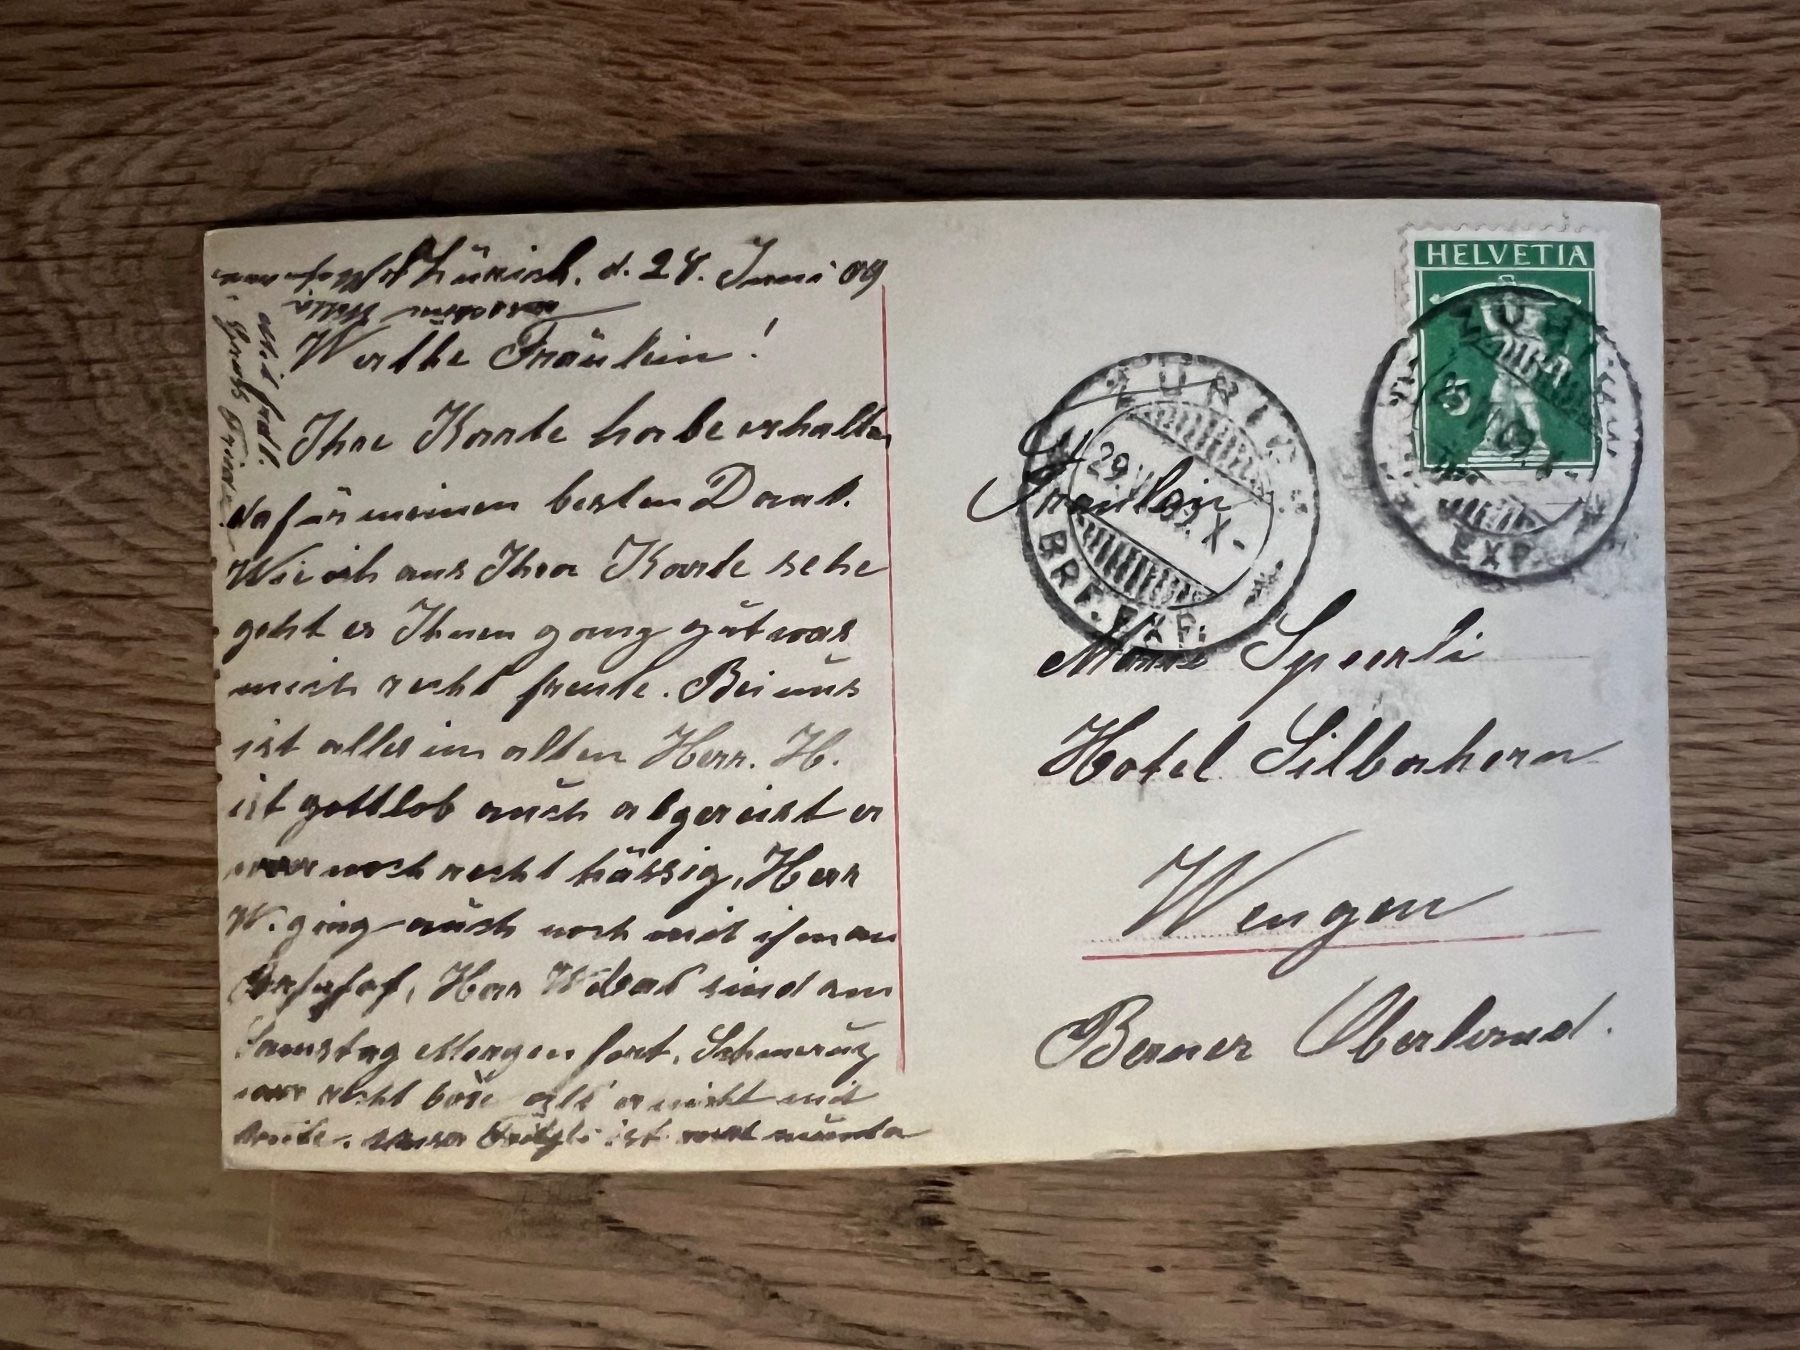 Zürich, d. 28. Juni 09
Werthe Fräulein!
Ihre Karte habe erhalten
dafür meinen besten Dank.
Wie ich aus Ihrer Karte sehe
geht es Ihnen ganz gut was
mich recht freute. Bei uns
ist alles im alten Herr. H.
ist gottlob auch abgereist er
war noch recht hässig, Herr
W. ging auch noch mit ihm an
Bahnhof, Herr sind am
Samstag Morgen fort,
war recht böse als er nicht mit
konnte. unser Fritzli ist munter
mit frdl.
Gruss Frieda
HELVETIA
5
ZÜRICH
29. VI. 09. X-
BRF. EXP.
EXP.
Fräulein
Marie Spoerli
Hotel Silberhorn
Wengen
Berner Oberland.